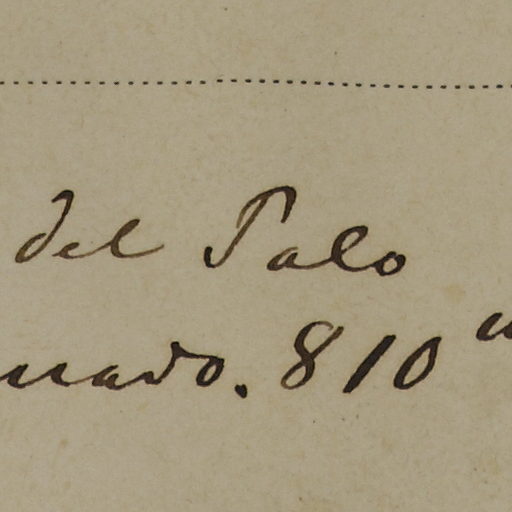 del Palo
nado. 810 m